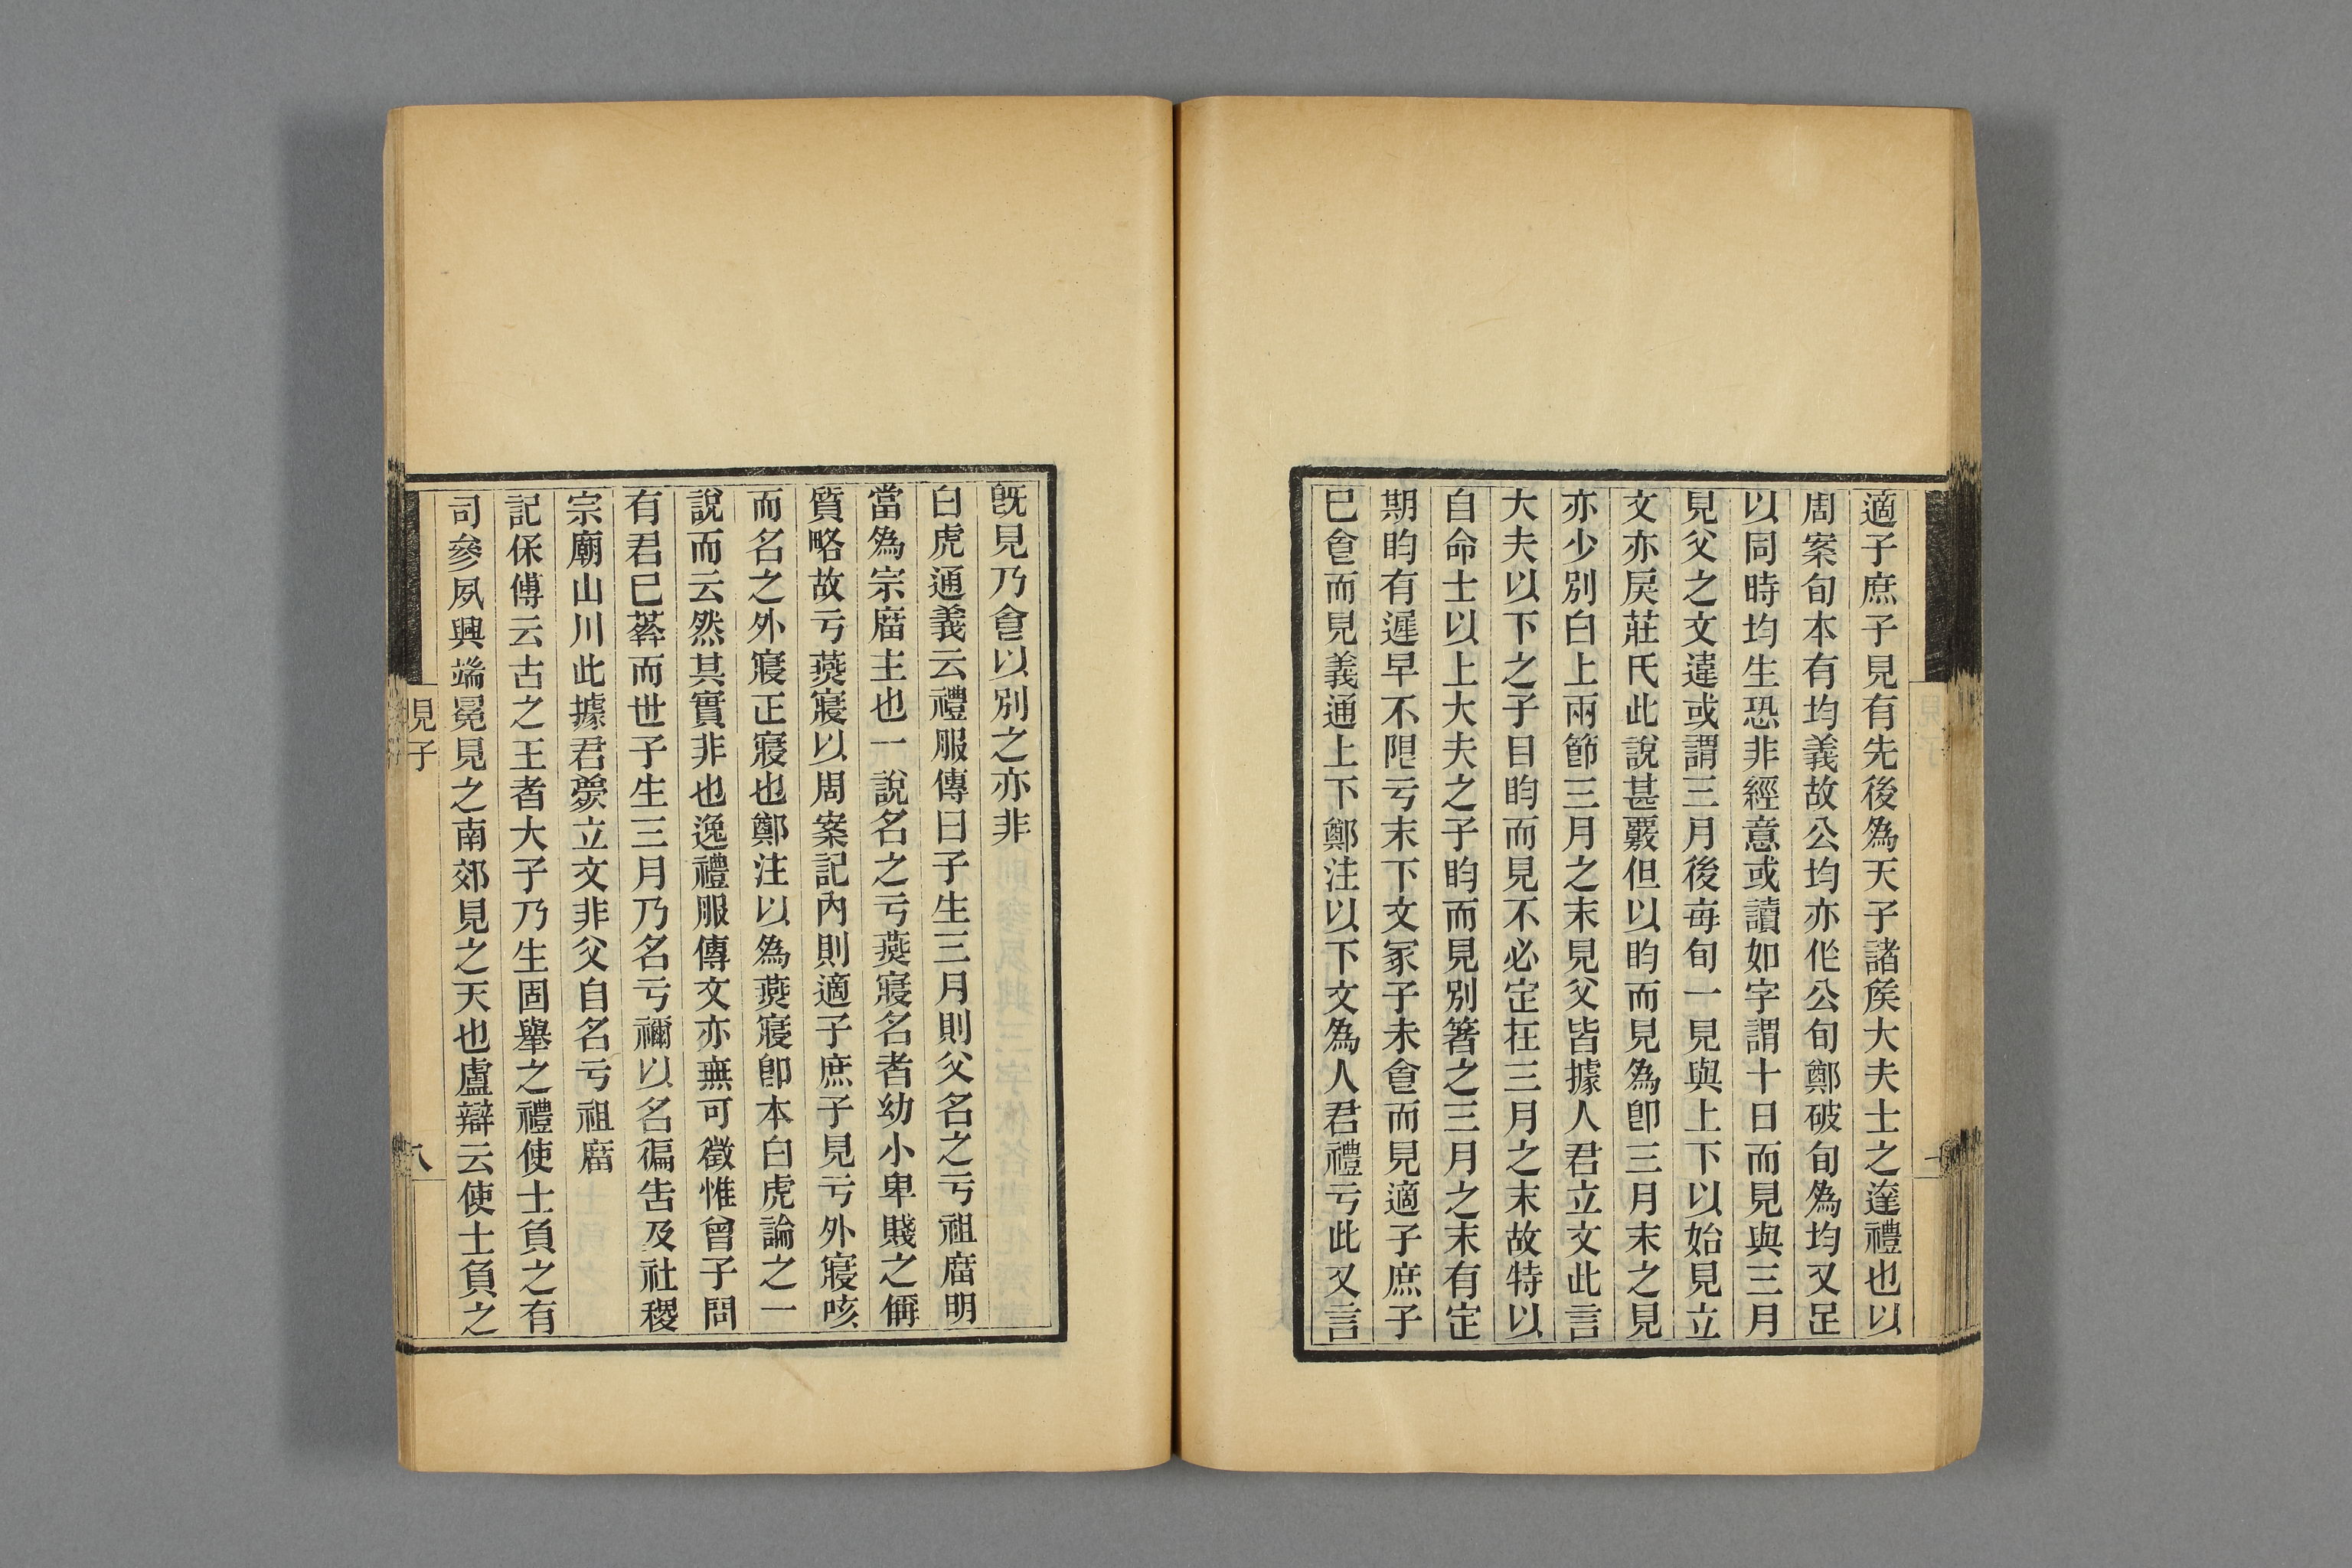 適子庶子見有先後為天子諸矦大夫士之達禮也以
周案旬本有均義故公均亦作公旬鄭破旬為均又足
以同時均生恐非經意或讀如字謂十日而見與三月
見父之文違或謂三月後每旬一見與上下以始見立
文亦戾莊氏此說甚覈但以旬而見為卽三月末之見
亦少別白上兩節三月之末見父皆據人君立文此言
大夫以下之子目旬而見不必定在三月之末故特以
自命士以上大夫之子旬而見別箸之三月之末有定
期旬有遲早不限亏末下文冢子未食而見適子庶子
已食而見義通上下鄭注以下文為人君禮亏此又言
旣見乃食以別之亦非
白虎通義云禮服傳曰子生三月則父名之亏祖廟明
當為宗廟主也一說名之亏燕寢名者幼小卑賤之偁
質略故亏燕寢以周案記內則適子庶子見亏外寢咳
而名之外寢正寢也鄭注以為燕寢卽本白虎論之一
說而云然其實非也逸禮服傳文亦無可徵惟曾子問
有君已葬而世子生三月乃名亏禰以名徧告及社稷
宗廟山川此據君薨立文非父自名亏祖廟
記保傅云古之王者大子乃生固舉之禮使士負之有
司參夙興端冕見之南郊見之天也盧辯云使士負之
見子
八